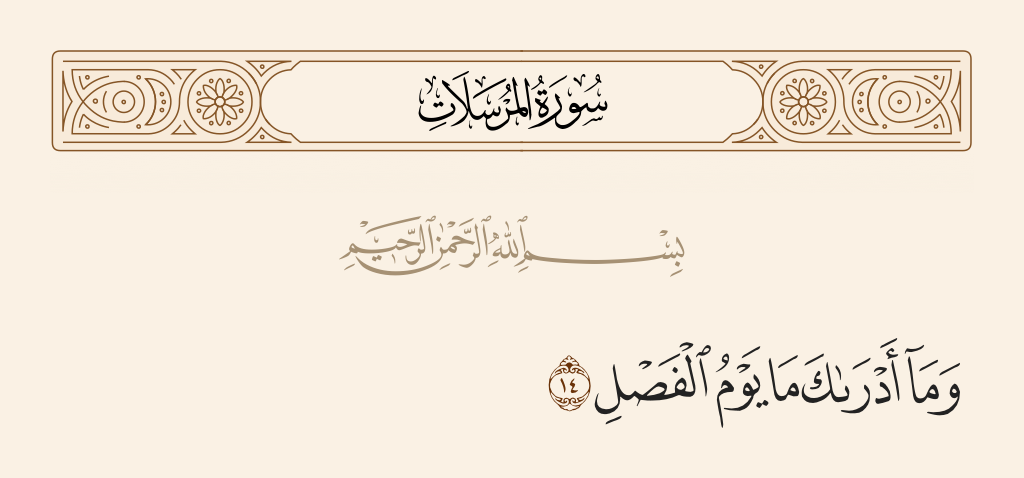 سُورَةُ المُرْسَلَاتِ
بِسْمِ ٱللَّهِ ٱلرَّحْمَٰنِ ٱلرَّحِيمِ
وَمَآ أَدْرَىٰكَ مَا يَوْمُ ٱلْفَصْلِ ١٤